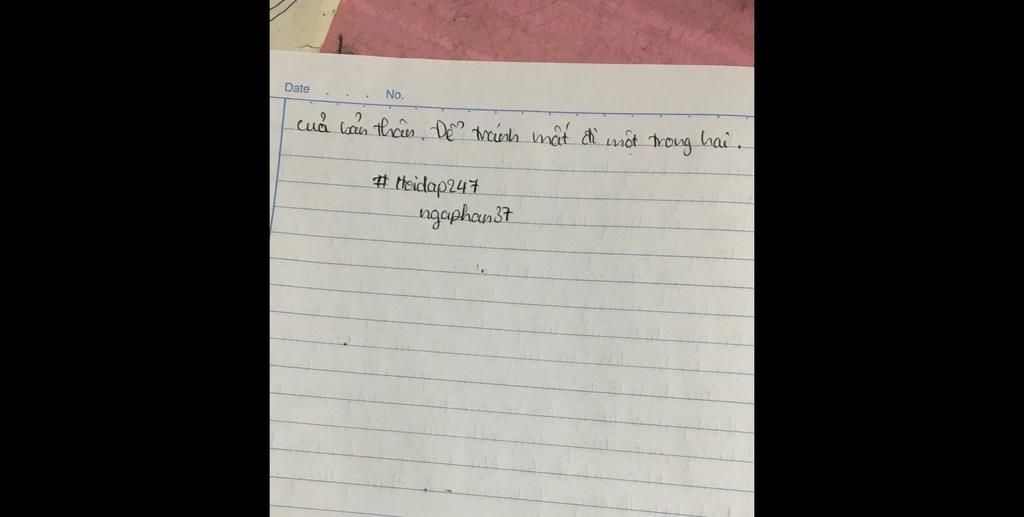 Date . . . No.
của bản thân. Để tránh mất đi một trong hai.
# Hoidap247
ngaphan37